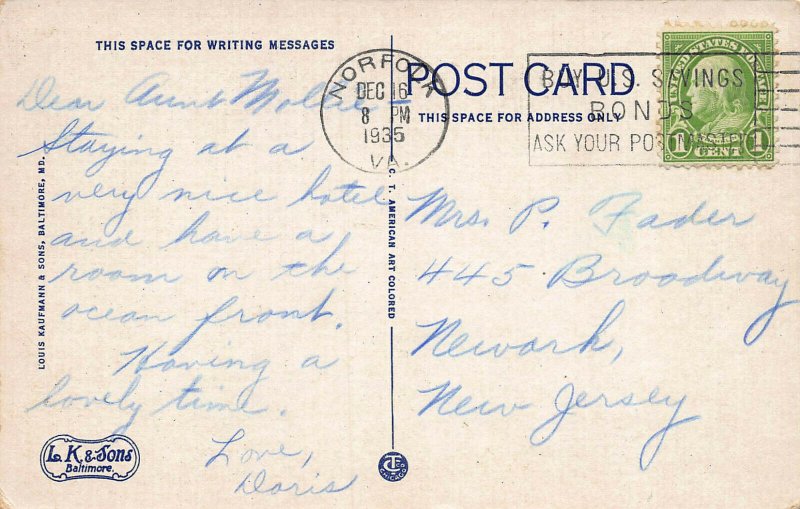 THIS SPACE FOR WRITING MESSAGES
Dear Aunt Mollie –
Staying at a
very nice hotel
and have a
room on the
ocean front.
Having a
lovely time.
Love,
Doris
LOUIS KAUFMANN & SONS, BALTIMORE, MD.
L. K. & Sons
Baltimore.
C. T. AMERICAN ART COLORED
CT
CHICAGO
NORFOLK
DEC 16
8 PM
1935
VA.
POST CARD
THIS SPACE FOR ADDRESS ONLY
BUY U.S. SAVINGS
BONDS
ASK YOUR POSTMASTER
UNITED STATES POSTAGE
1 CENT 1
Mrs. P. Fader
445 Broadway
Newark,
New Jersey